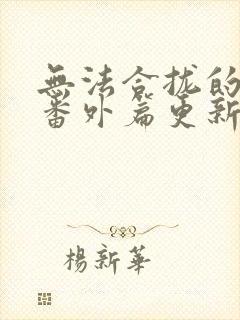 無法合拢的
番外篇更新
楊新華